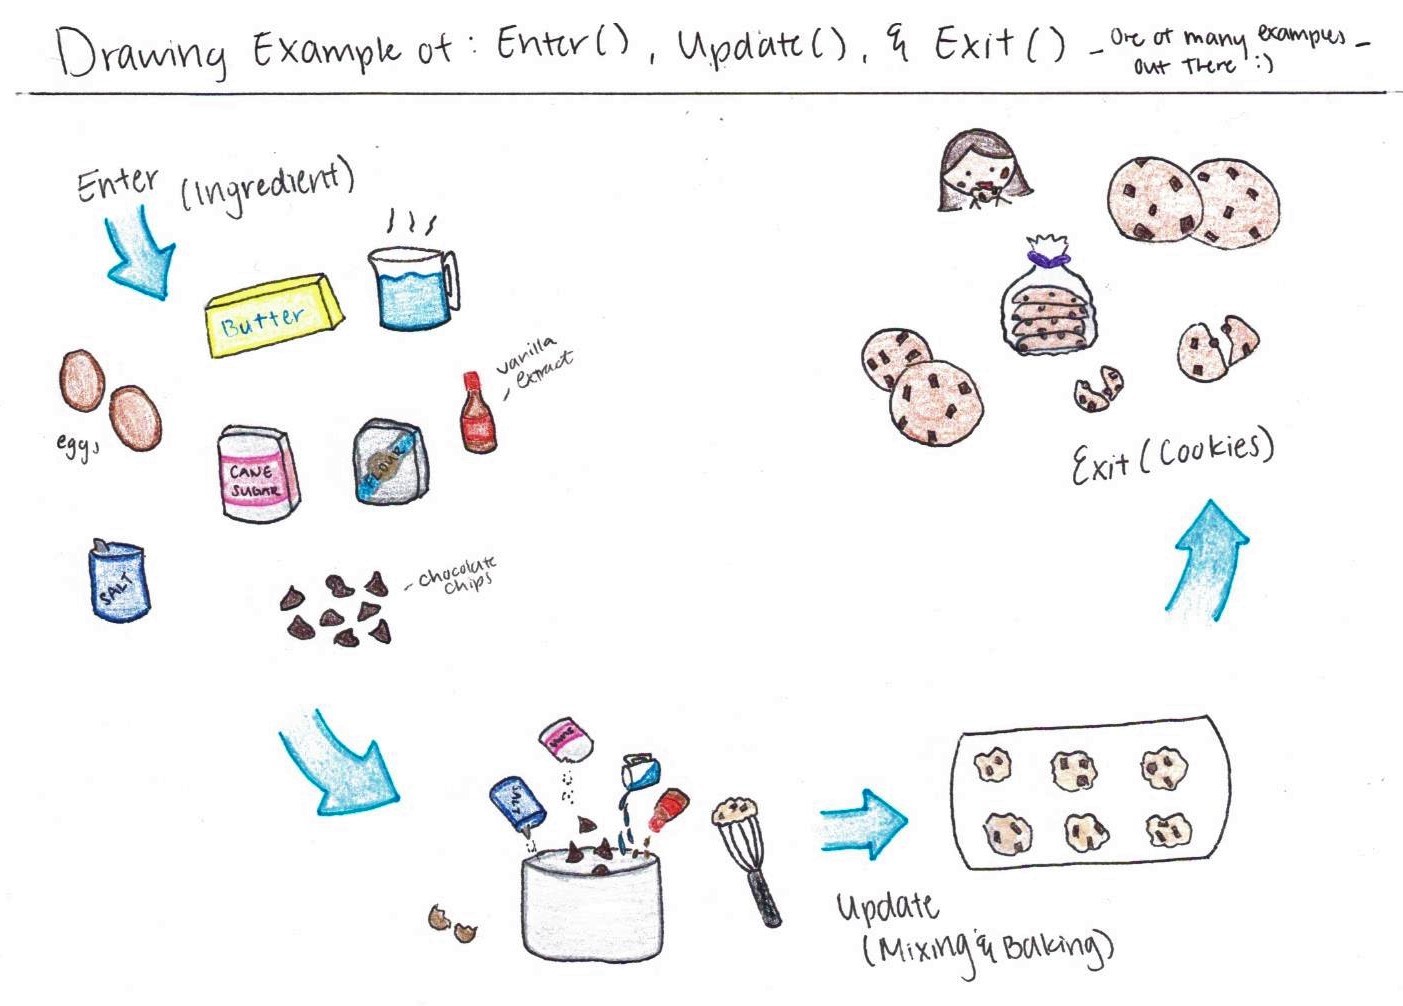 Drawing Example of: Enter(), Update(), & Exit() - One of many examples -
out there :)
Enter (Ingredient)
Butter
vanilla
extract
eggs
CANE
SUGAR
FLOUR
SALT
- chocolate
chips
SALT
Exit (Cookies)
Update
(Mixing & Baking)